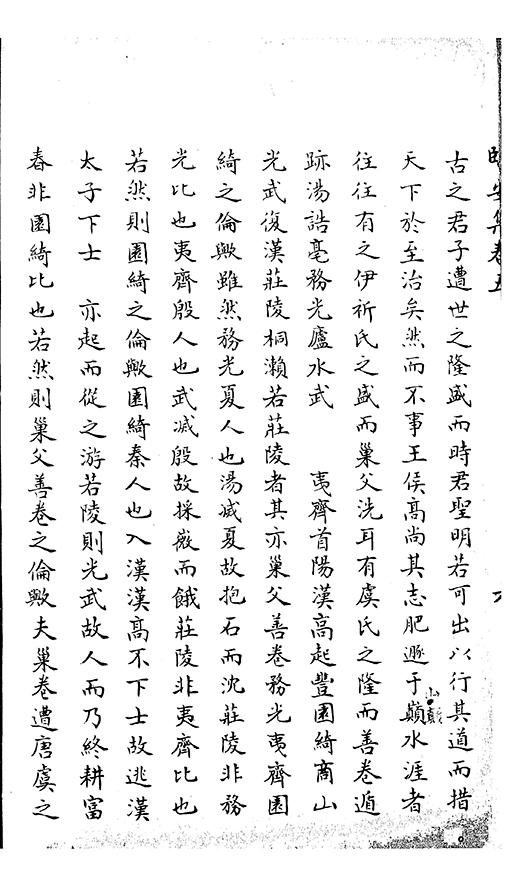 古之君子遭世之隆盛而時君聖明若可出以行其道而措
天下於至治矣然而不事王侯高尚其志肥遯于山巔水涯者
往往有之伊祈氏之盛而巢父洗耳有虞氏之隆而善卷遁
跡湯誥亳務光廬水武　　夷齊首陽漢高起豐園綺商山
光武復漢莊陵桐瀨若莊陵者其亦巢父善卷務光夷齊園
綺之倫歟雖然務光夏人也湯滅夏故抱石而沈莊陵非務
光比也夷齊殷人也武滅殷故採薇而餓莊陵非夷齊比也
若然則園綺之倫歟園綺秦人也入漢漢高不下士故逃漢
太子下士　亦起而從之游若陵則光武故人而乃終耕富
春非園綺比也若然則巢父善卷之倫歟夫巢卷遭唐虞之